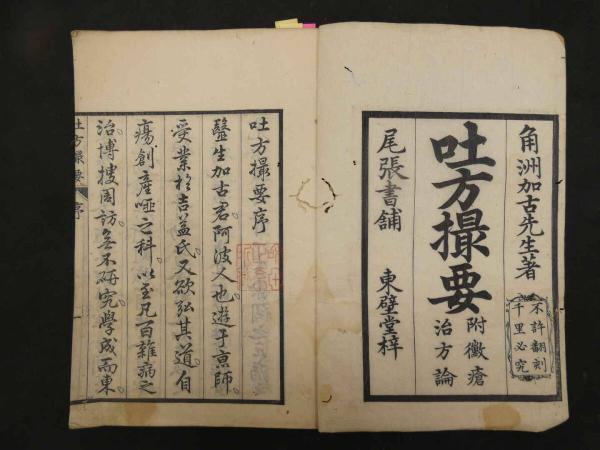 角洲加古先生著
不許翻刻
千里必究
吐方撮要
附黴瘡
治方論
尾張書舗 東壁堂梓
吐方撮要序
醫生加古君阿波人也遊于京師
受業於吉益氏又欲弘其道自
瘍創産啞之科以至凡百雜病之
治博搜周訪無不研究學成而東
吐方撮要 序